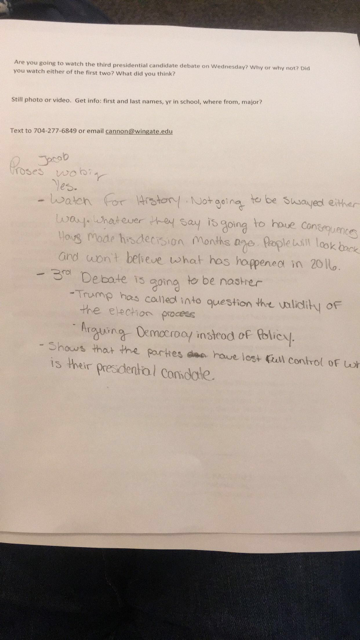 Are you going to watch the third presidential candidate debate on Wednesday? Why or why not? Did
you watch either of the first two? What did you think?
Still photo or video. Get info: first and last names, yr in school, where from, major?
Text to 704-277-6849 or email cannon@wingate.edu
Jacob
Yes.
- Watch For History. Not going to be swayed either
way. whatever they say is going to have consequences
made his decision months ago. People will look back
and won't believe what has happened in 2016.
- 3rd Debate is going to be nastier
- Trump has called into question the validity of
the election process
- Arguing Democracy instead of Policy.
- Shows that the parties have lost full control of
is their presdential canidate.